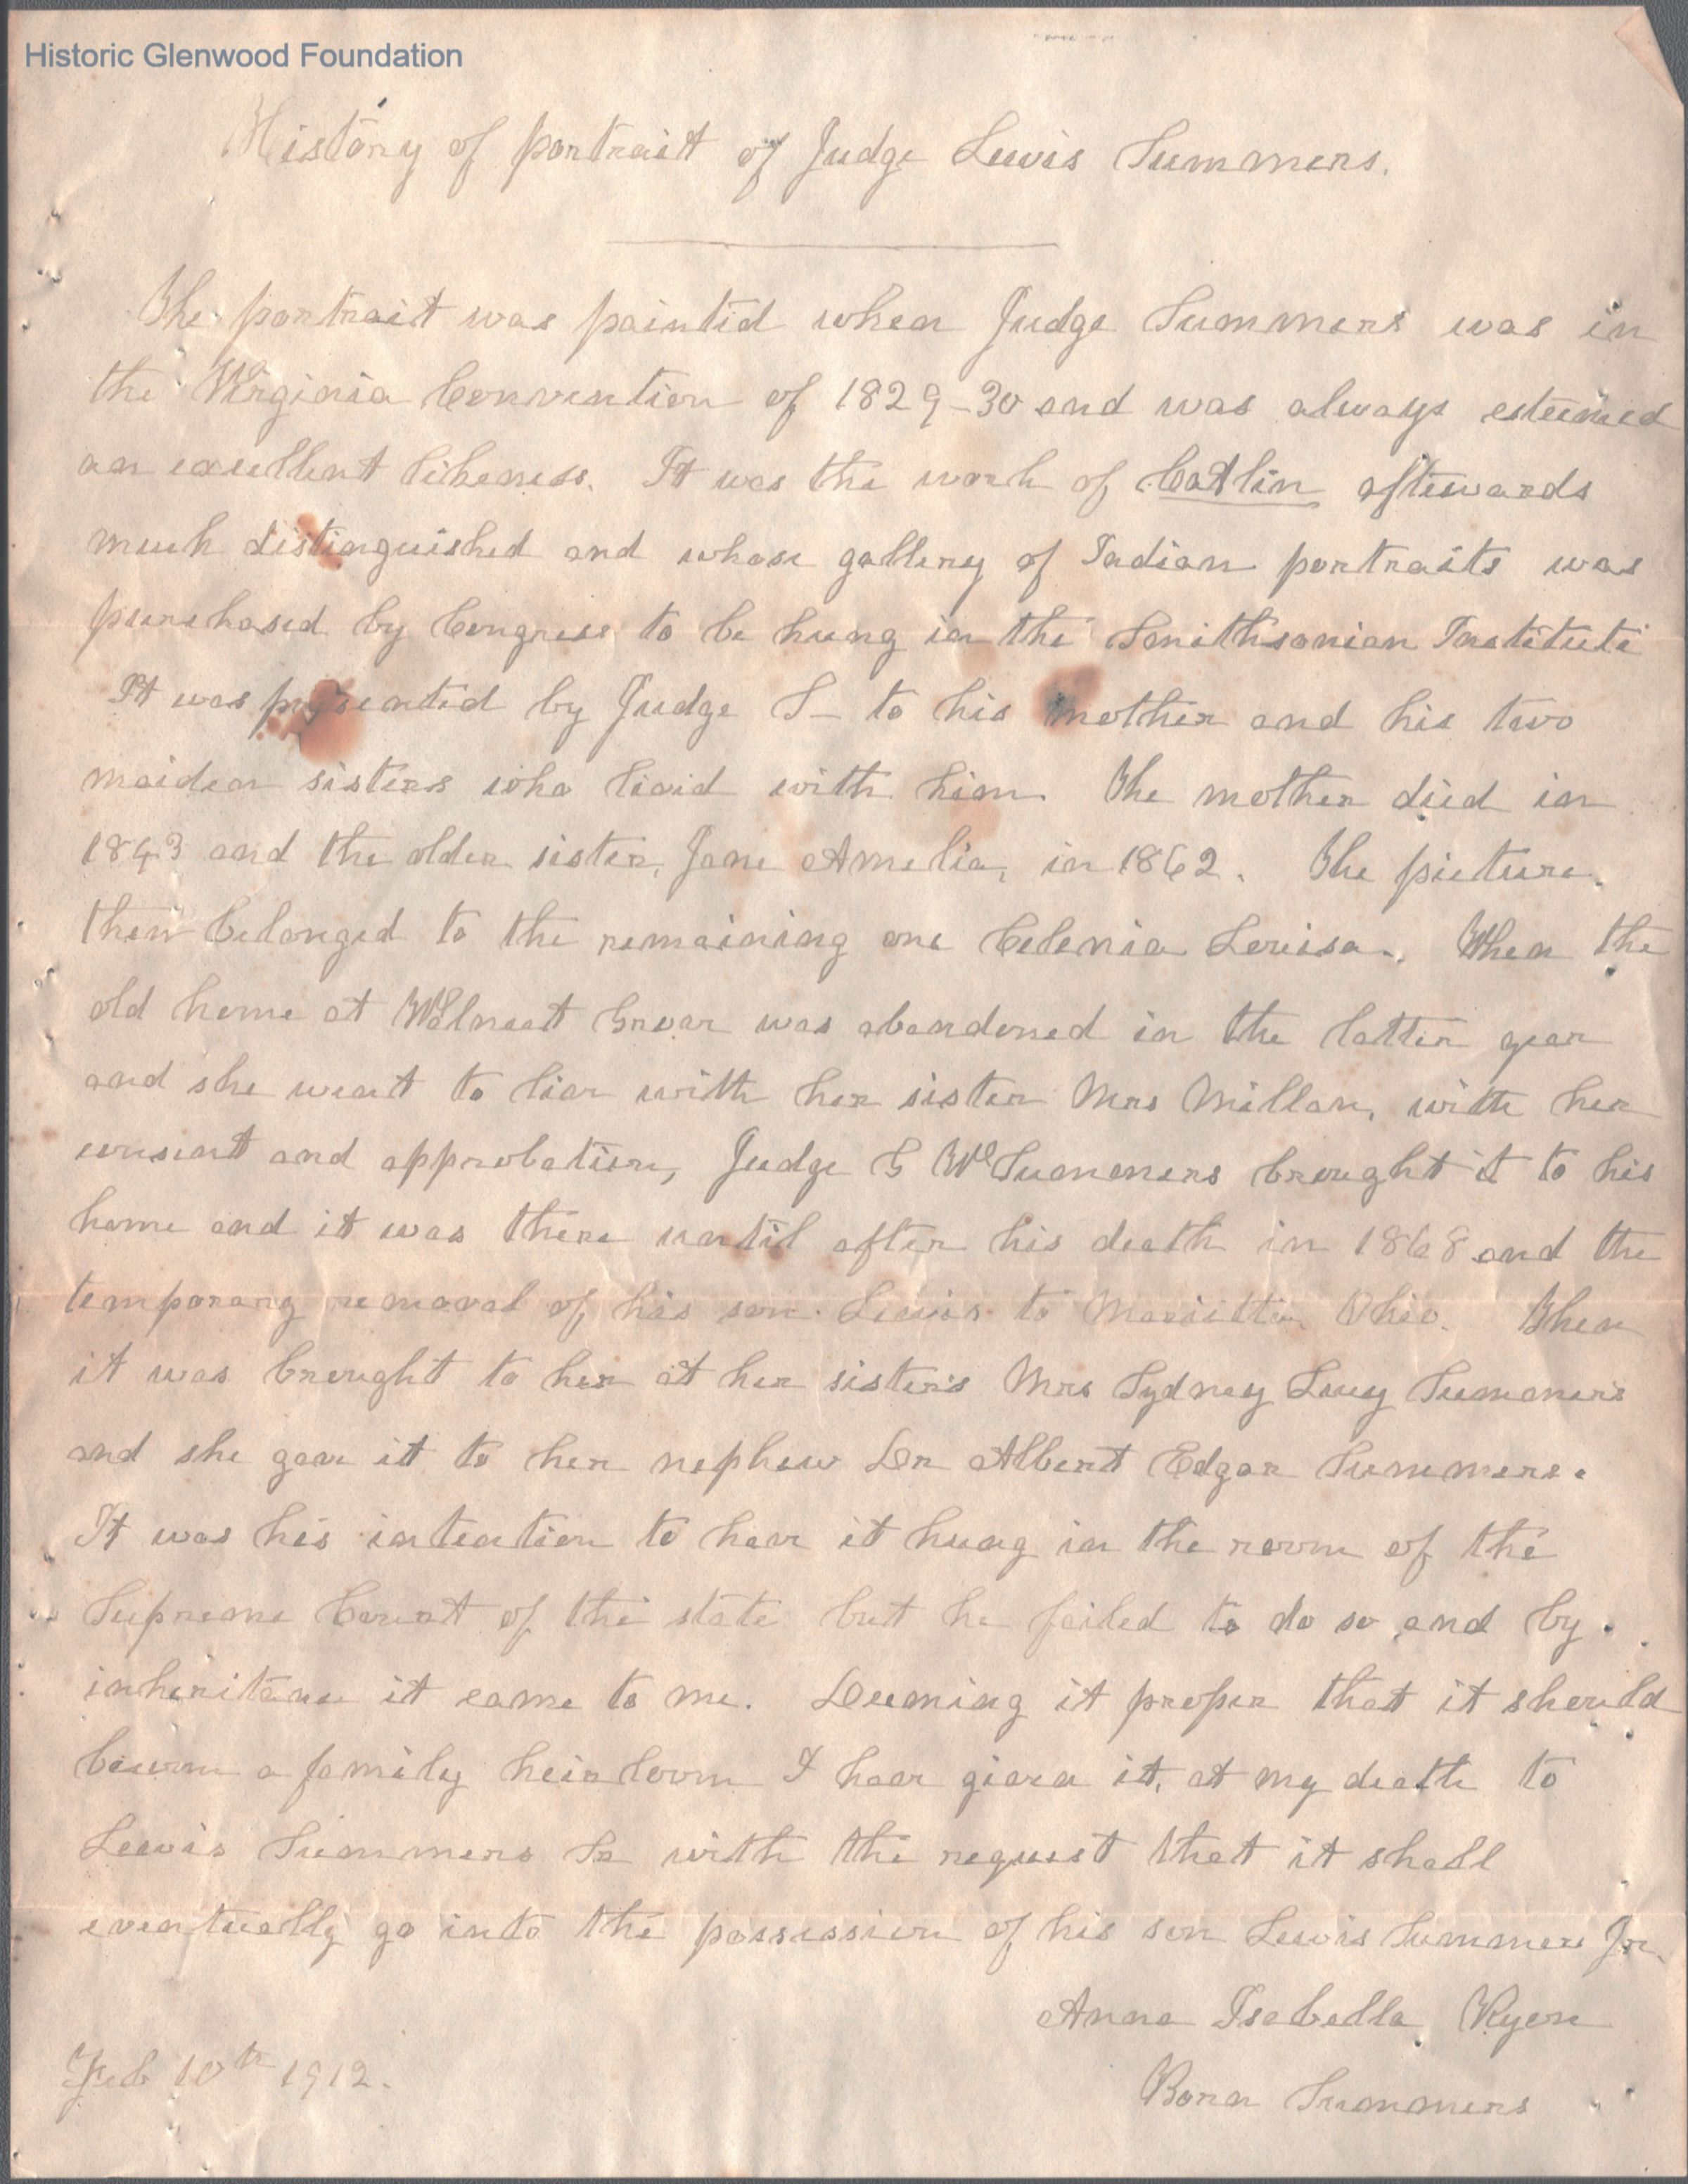 Historic Glenwood Foundation
History of portrait of Judge Lewis Summers.
The portrait was painted when Judge Summers was in
the Virginia Convention of 1829-30 and was always esteemed
an excellent likeness. It was the work of Catlin aftewards
much distinguished and whose gallery of Indian portraits was
purchased by Congress to be hung in the Smithsonian Institute
It was presented by Judge S- to his mother and his two
maiden sisters who lived with him. The mother died in
1843 and the older sister, Jane Amelia, in 1862. The picture
then belonged to the remaining one Celenia Louisa. When the
old home at Walnut Grove was abandoned in the latter year
and she went to live with her sister Mrs Millan, with her
consent and approbation, Judge G W Summers brought it to his
home and it was there until after his death in 1868 and the
temporary removal of his son Lewis to Marietta Ohio. Then
it was brought to her at her sister's Mrs Sydney Lucy Summers
and she gave it to her nephew Dr Albert Edgar Summers.
It was his intention to have it hung in the room of the
Supreme Court of the state but he failed to do so and by
inheritance it came to me. Deeming it proper that it should
become a family heirloom I have given it, at my death to
Lewis Summers Sr with the request that it shall
eventually go into the possession of his son Lewis Summers Jr.
Anna Isabella
Born Summers
Feb 10th 1912.